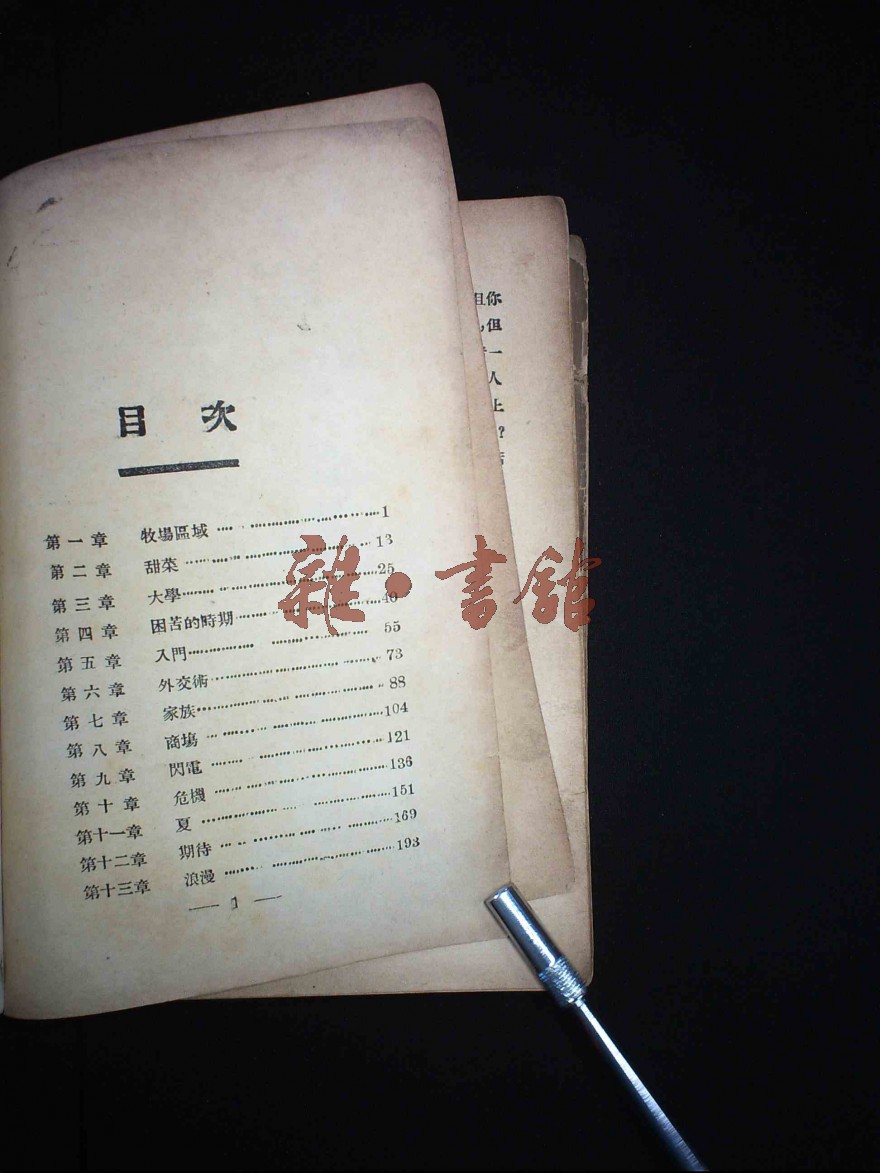 目次
第一章 牧場區域 1
第二章 甜菜 13
第三章 大學 25
第四章 困苦的時期 40
第五章 入門 55
第六章 外交術 73
第七章 家族 88
第八章 商塲 104
第九章 閃電 121
第十章 危機 136
第十一章 夏 151
第十二章 期待 169
第十三章 浪漫 193
— 1 —
雜·書館
你
但
一
人
上
?